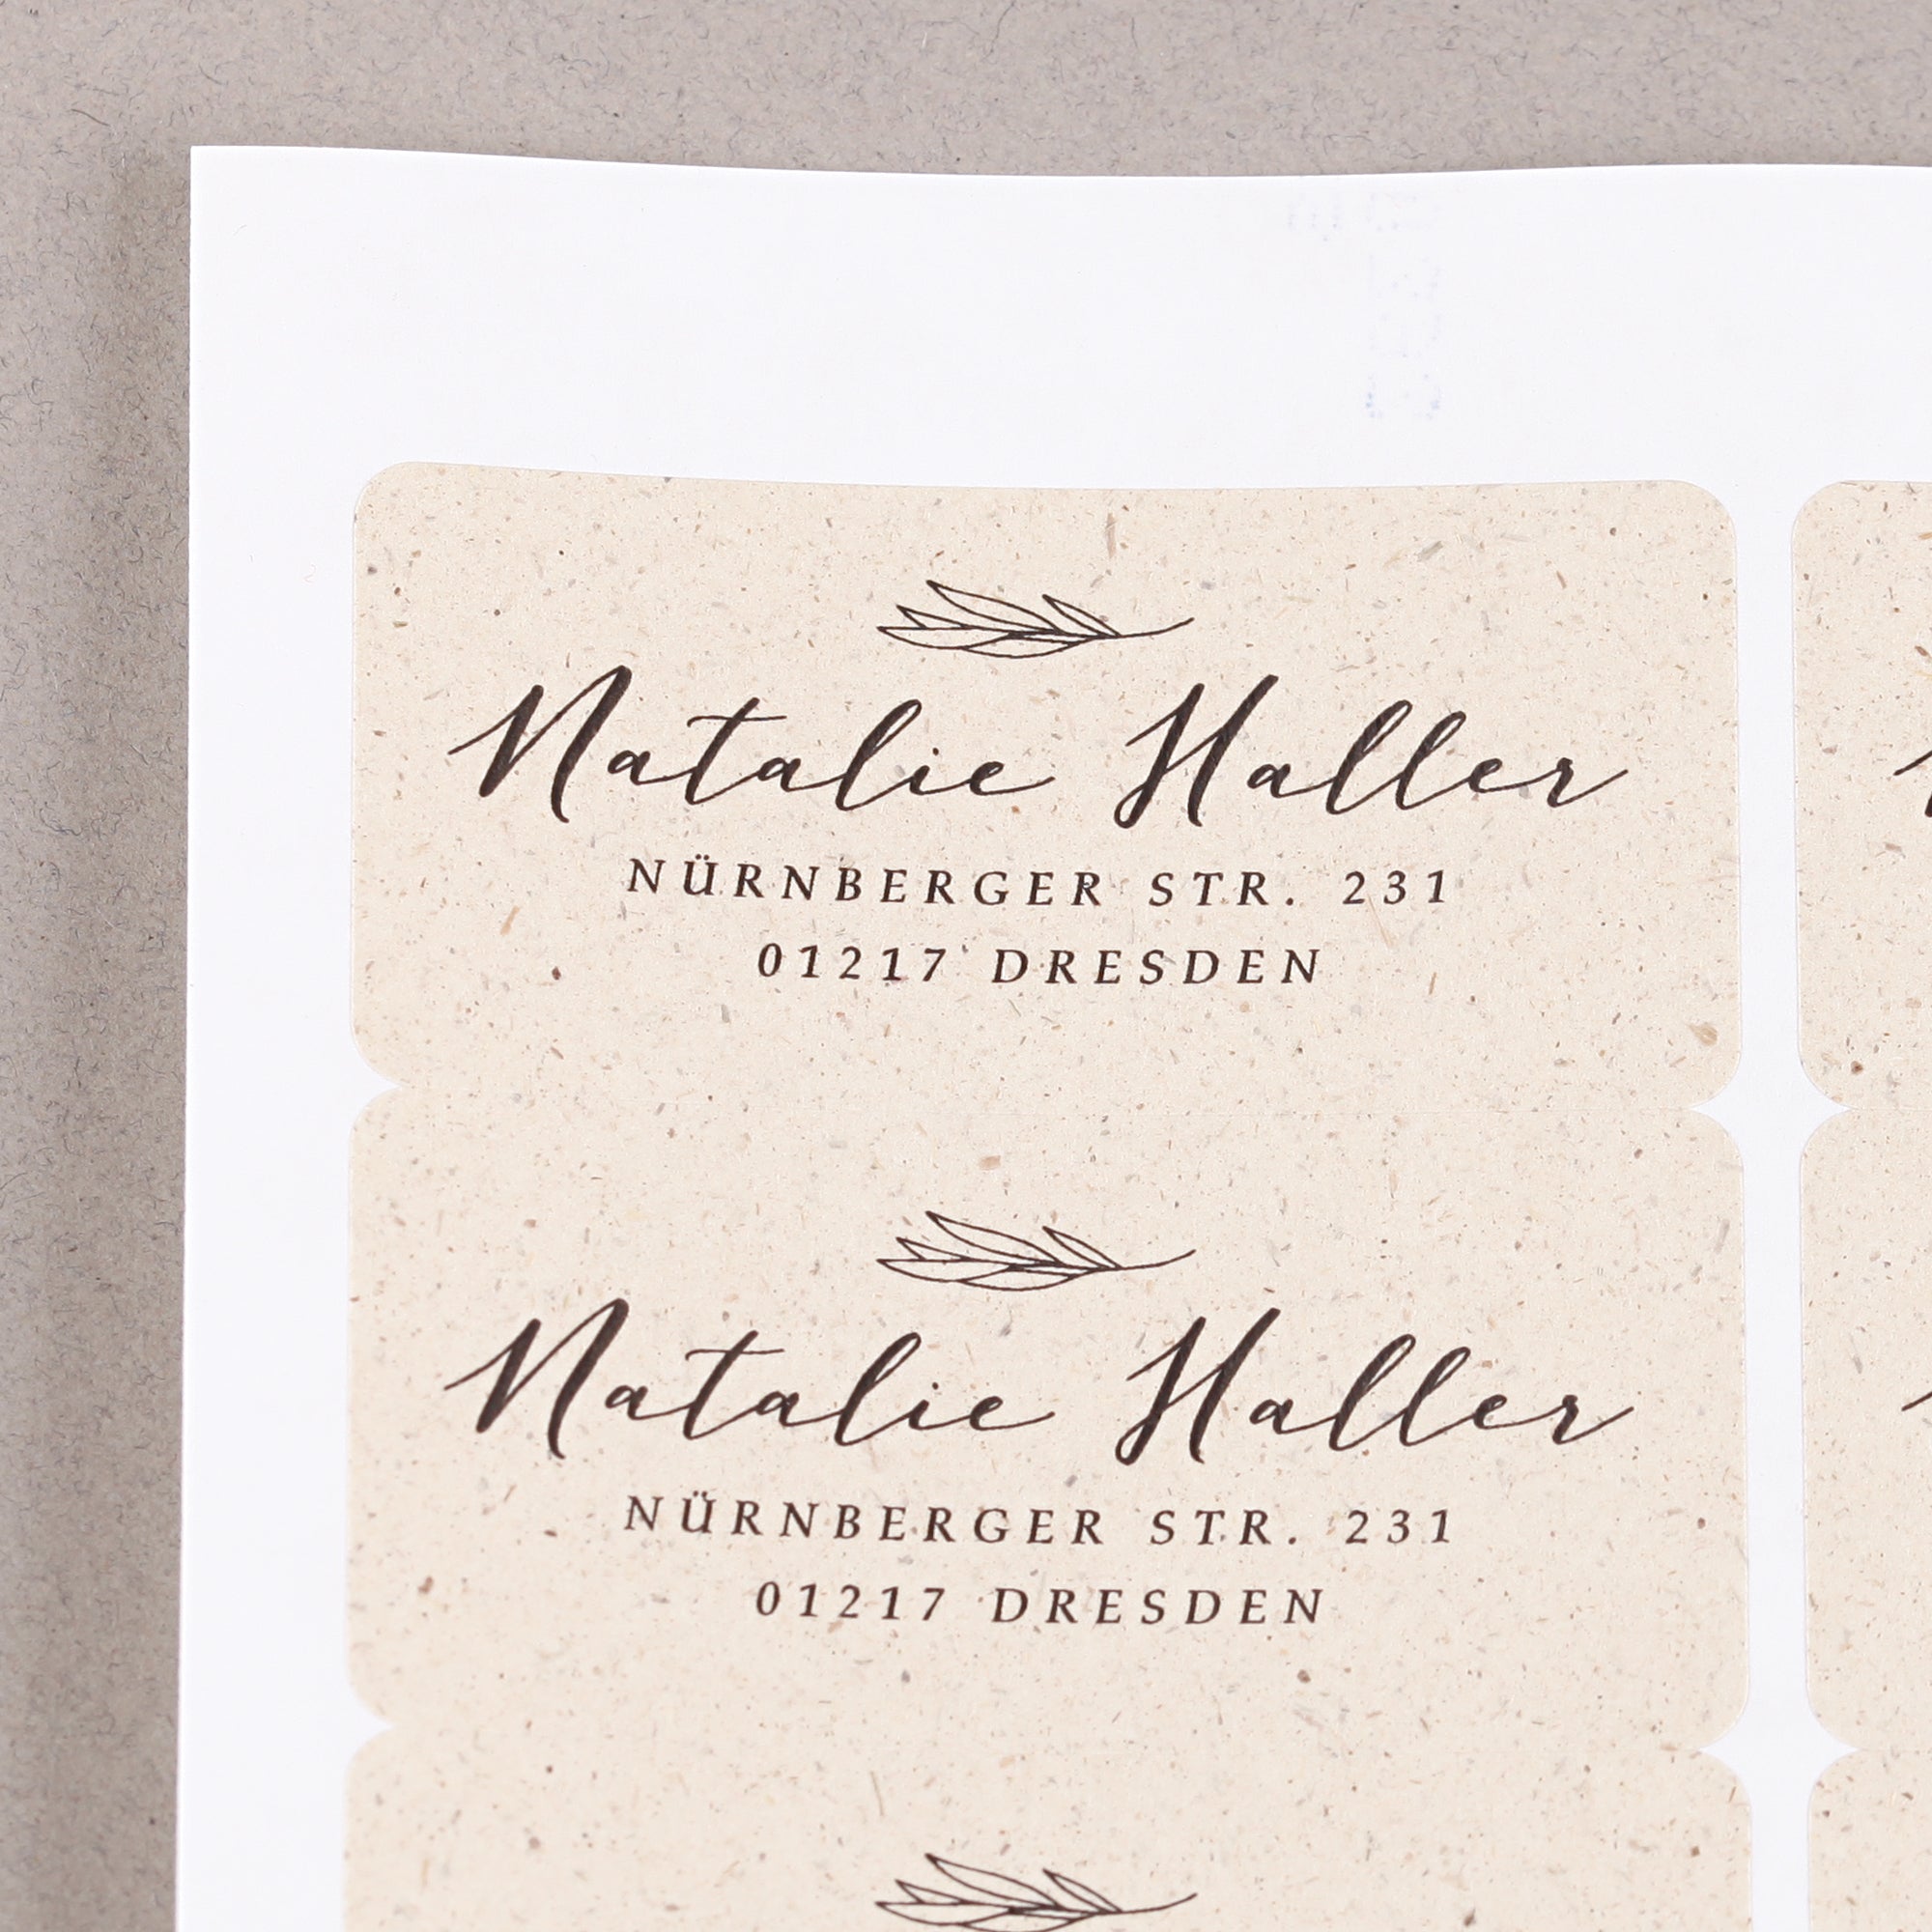 Natalie Haller
NÜRNBERGER STR. 231
01217 DRESDEN
Natalie Haller
NÜRNBERGER STR. 231
01217 DRESDEN